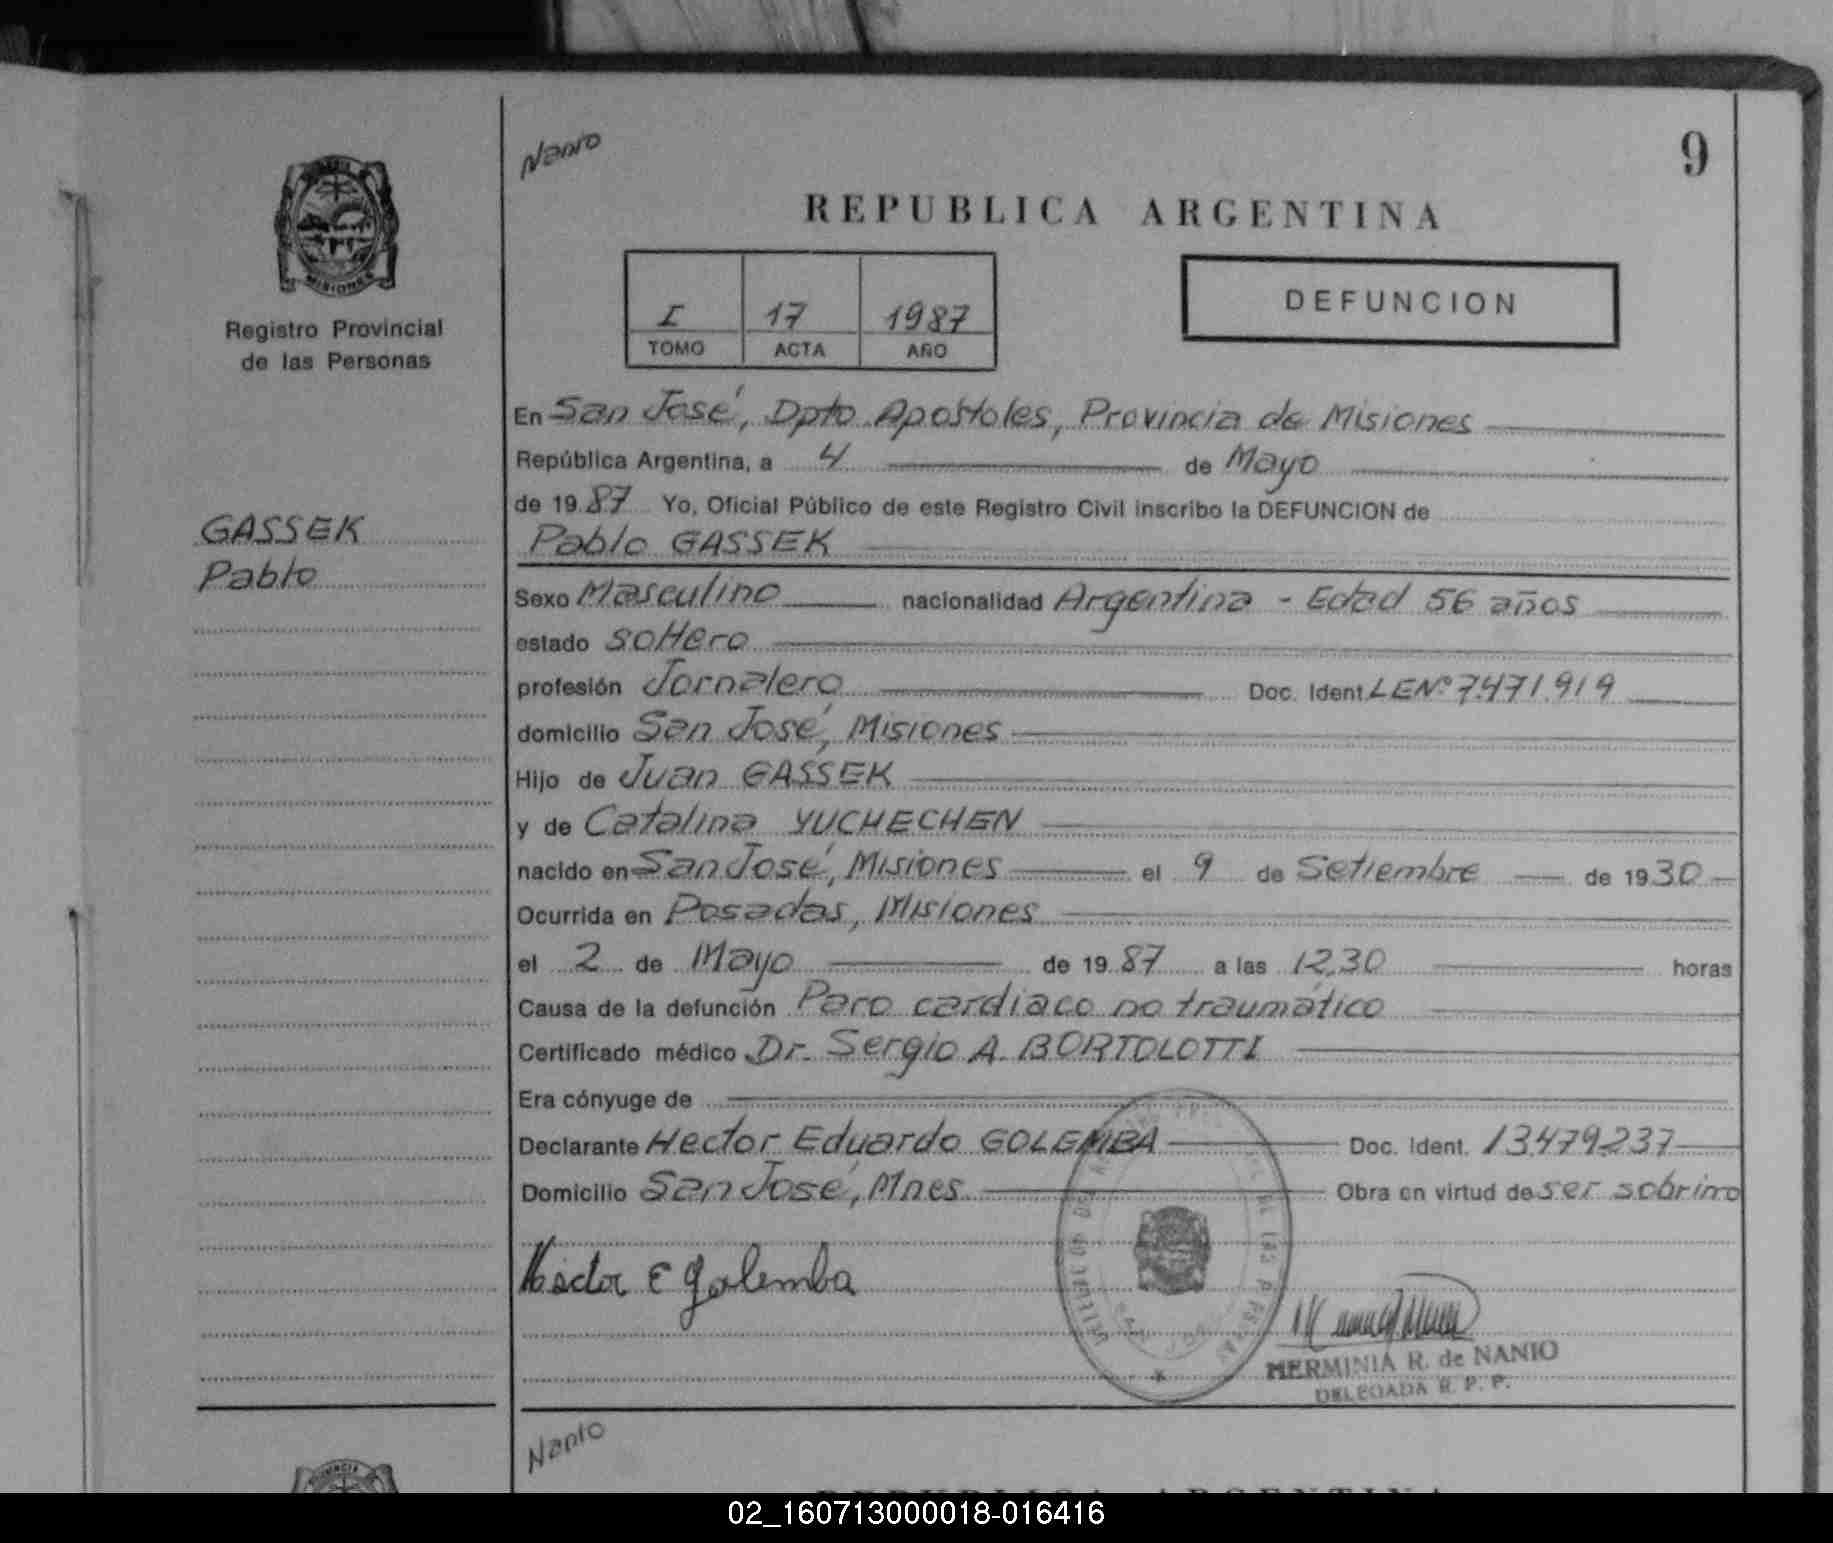 Nanio
9
REPUBLICA ARGENTINA
MISIONES
Registro Provincial
de las Personas
I 17 1987
TOMO ACTA AÑO
DEFUNCION
En San José, Dpto Apóstoles, Provincia de Misiones
República Argentina, a 4 de Mayo
de 1987 Yo, Oficial Público de este Registro Civil inscribo la DEFUNCION de
GASSEK
Pablo
Pablo GASSEK
Sexo Masculino nacionalidad Argentina - Edad 56 años
estado soltero
profesión Jornalero Doc. Ident. LENº 7.471.919
domicilio San José, Misiones
Hijo de Juan GASSEK
y de Catalina YUCHECHEN
nacido en San José, Misiones el 9 de Setiembre de 1930
Ocurrida en Posadas, Misiones
el 2 de Mayo de 1987 a las 12,30 horas
Causa de la defunción Paro cardiaco no traumático
Certificado médico Dr. Sergio A. BORTOLOTTI
Era cónyuge de
Declarante Hector Eduardo GOLEMBA Doc. Ident. 13.479.237
Domicilio San José, Mnes Obra en virtud de ser sobrino
Hector E Golemba
HERMINIA R. de NANIO
DELEGADA R. P. P.
Nanio
REPUBLICA ARGENTINA
02_160713000018-016416